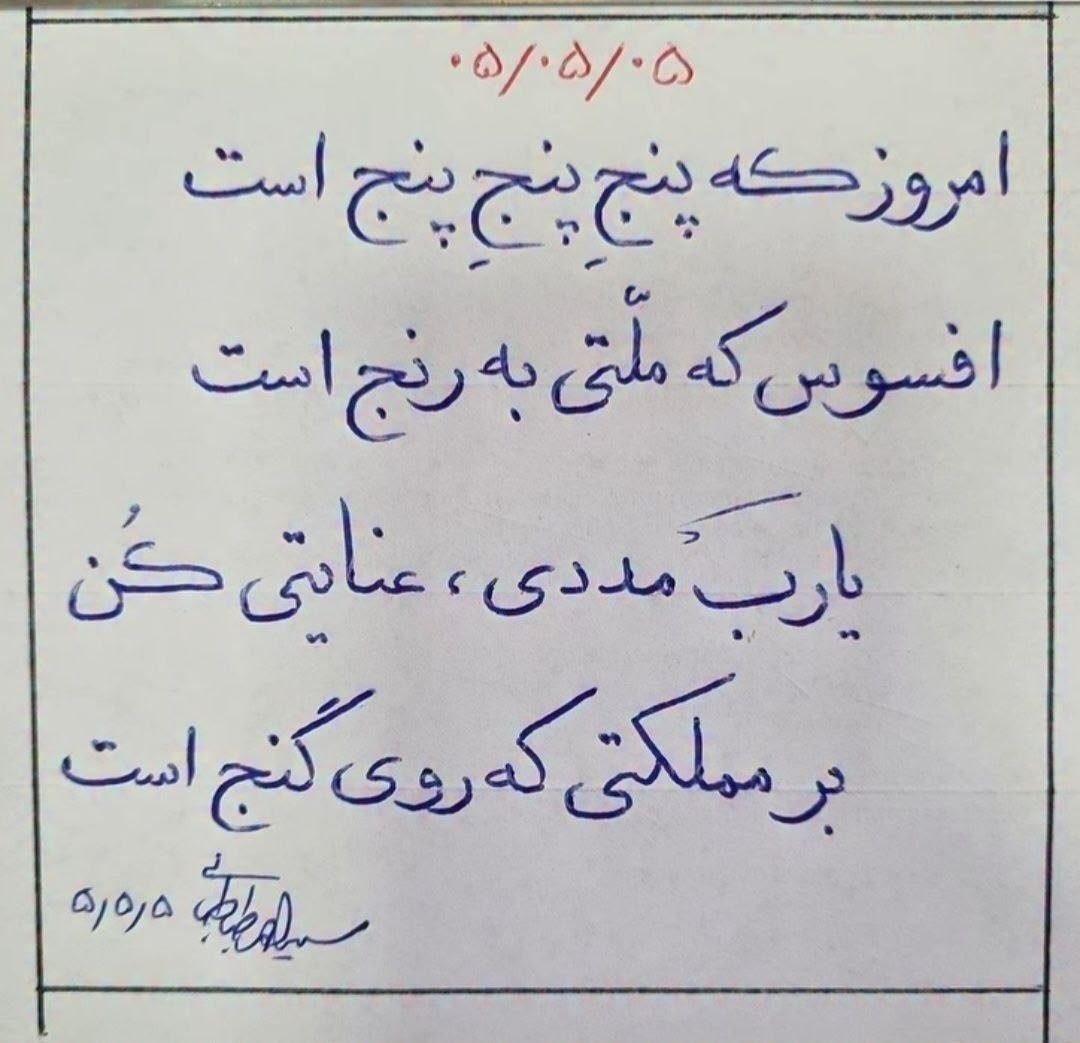 ۰۵/۰۵/۰۵
امروز که پنجِ پنجِ پنج است
افسوس که ملّتی به رنج است
یا ربَ مددی ، عنایتی کُن
بر مملکتی که روی گنج است
۵٫۵٫۵